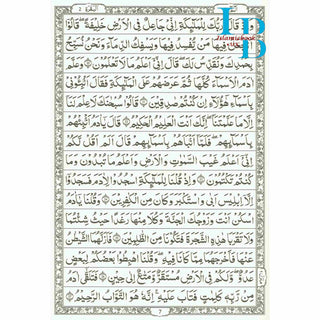 وَإِذْ قَالَ رَبُّكَ لِلْمَلٰٓئِكَةِ إِنِّي جَاعِلٌ فِي الْأَرْضِ خَلِيفَةً ۖ قَالُوٓا
أَتَجْعَلُ فِيهَا مَنْ يُفْسِدُ فِيهَا وَيَسْفِكُ الدِّمَآءَ وَنَحْنُ نُسَبِّحُ
بِحَمْدِكَ وَنُقَدِّسُ لَكَ ۖ قَالَ إِنِّيٓ أَعْلَمُ مَا لَا تَعْلَمُونَ ۞ وَعَلَّمَ
آدَمَ الْأَسْمَآءَ كُلَّهَا ثُمَّ عَرَضَهُمْ عَلَى الْمَلٰٓئِكَةِ فَقَالَ أَنْبِـُٔونِي
بِأَسْمَآءِ هٰٓؤُلَآءِ إِنْ كُنْتُمْ صٰدِقِينَ ۞ قَالُوا سُبْحٰنَكَ لَا عِلْمَ لَنَآ
إِلَّا مَا عَلَّمْتَنَا ۖ إِنَّكَ أَنْتَ الْعَلِيمُ الْحَكِيمُ ۞ قَالَ يٰٓـَٔادَمُ أَنْبِئْهُمْ
بِأَسْمَآئِهِمْ ۖ فَلَمَّآ أَنْبَأَهُمْ بِأَسْمَآئِهِمْ قَالَ أَلَمْ أَقُلْ لَكُمْ
إِنِّيٓ أَعْلَمُ غَيْبَ السَّمٰوٰتِ وَالْأَرْضِ وَأَعْلَمُ مَا تُبْدُونَ وَمَا
كُنْتُمْ تَكْتُمُونَ ۞ وَإِذْ قُلْنَا لِلْمَلٰٓئِكَةِ اسْجُدُوا لِآدَمَ فَسَجَدُوٓا
إِلَّآ إِبْلِيسَ أَبَىٰ وَاسْتَكْبَرَ وَكَانَ مِنَ الْكٰفِرِينَ ۞ وَقُلْنَا يٰٓـَٔادَمُ
اسْكُنْ أَنْتَ وَزَوْجُكَ الْجَنَّةَ وَكُلَا مِنْهَا رَغَدًا حَيْثُ شِئْتُمَا
وَلَا تَقْرَبَا هٰذِهِ الشَّجَرَةَ فَتَكُونَا مِنَ الظّٰلِمِينَ ۞ فَأَزَلَّهُمَا الشَّيْطٰنُ
عَنْهَا فَأَخْرَجَهُمَا مِمَّا كَانَا فِيهِ ۖ وَقُلْنَا اهْبِطُوا بَعْضُكُمْ لِبَعْضٍ
عَدُوٌّ ۖ وَلَكُمْ فِي الْأَرْضِ مُسْتَقَرٌّ وَمَتٰعٌ إِلَىٰ حِينٍ ۞ فَتَلَقَّىٰٓ آدَمُ
مِنْ رَبِّهِ كَلِمٰتٍ فَتَابَ عَلَيْهِ ۚ إِنَّهُ هُوَ التَّوَّابُ الرَّحِيمُ ۞
7